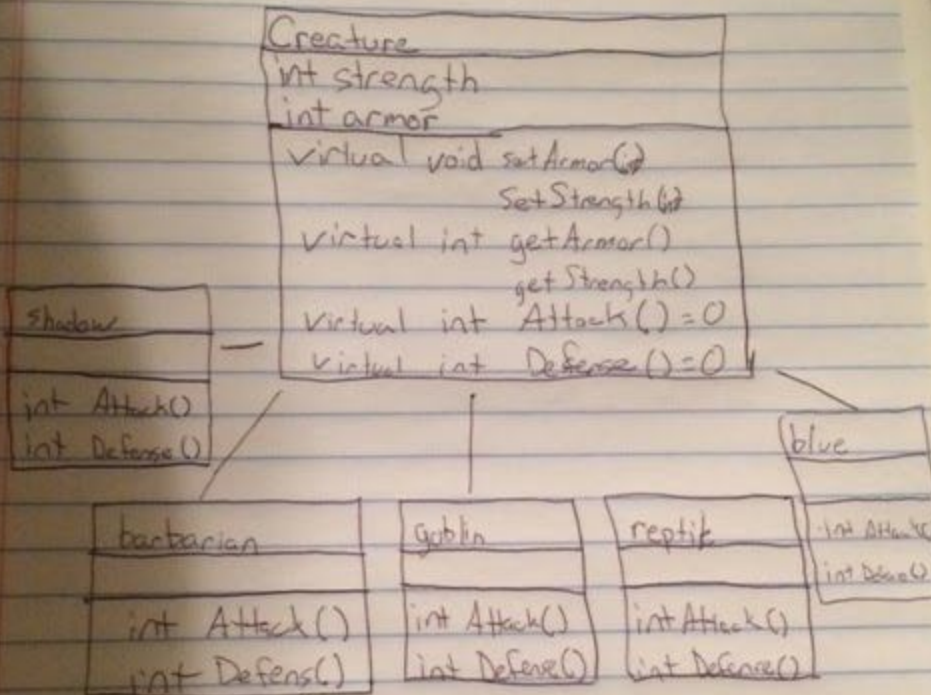 Creature
int strength
int armor
virtual void setArmor(int)
SetStrength(int)
virtual int getArmor()
get Strength()
virtual int Attack() = 0
virtual int Defense() = 0
shadow
int Attack()
int Defense()
barbarian
int Attack()
int Defens()
goblin
int Attack()
int Defene()
reptile
int Attack()
int Defense()
blue
int Attack(
int Defense()